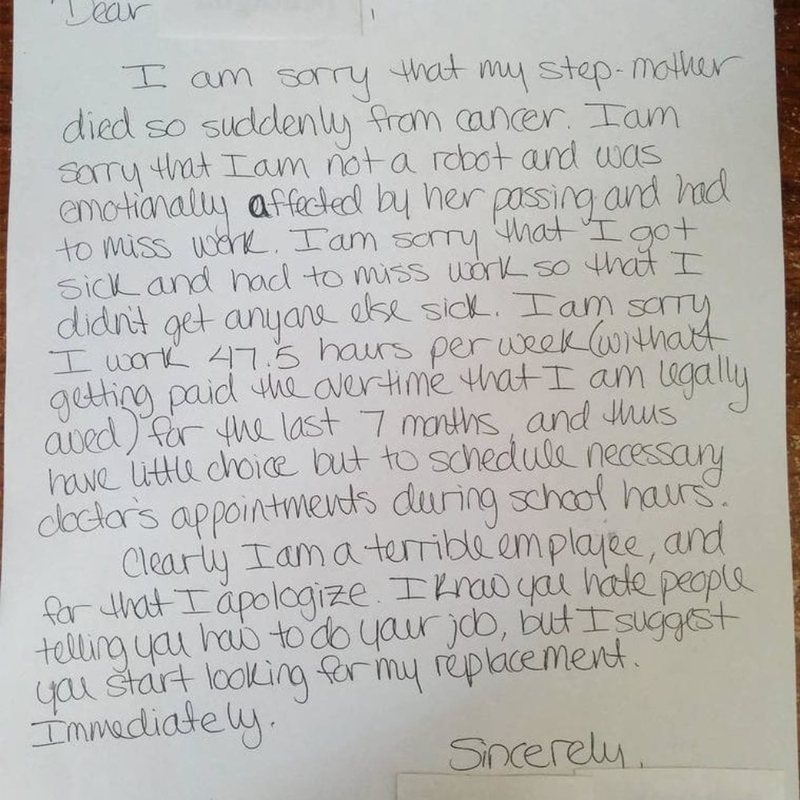 Dear ,
I am sorry that my step-mother
died so suddenly from cancer. I am
sorry that I am not a robot and was
emotionally affected by her passing and had
to miss work. I am sorry that I got
sick and had to miss work so that I
didn't get anyone else sick. I am sorry
I work 47.5 hours per week (without
getting paid the overtime that I am legally
owed) for the last 7 months, and thus
have little choice but to schedule necessary
doctor's appointments during school hours.
Clearly I am a terrible employee, and
for that I apologize. I know you hate people
telling you how to do your job, but I suggest
you start looking for my replacement.
Immediately.
Sincerely,